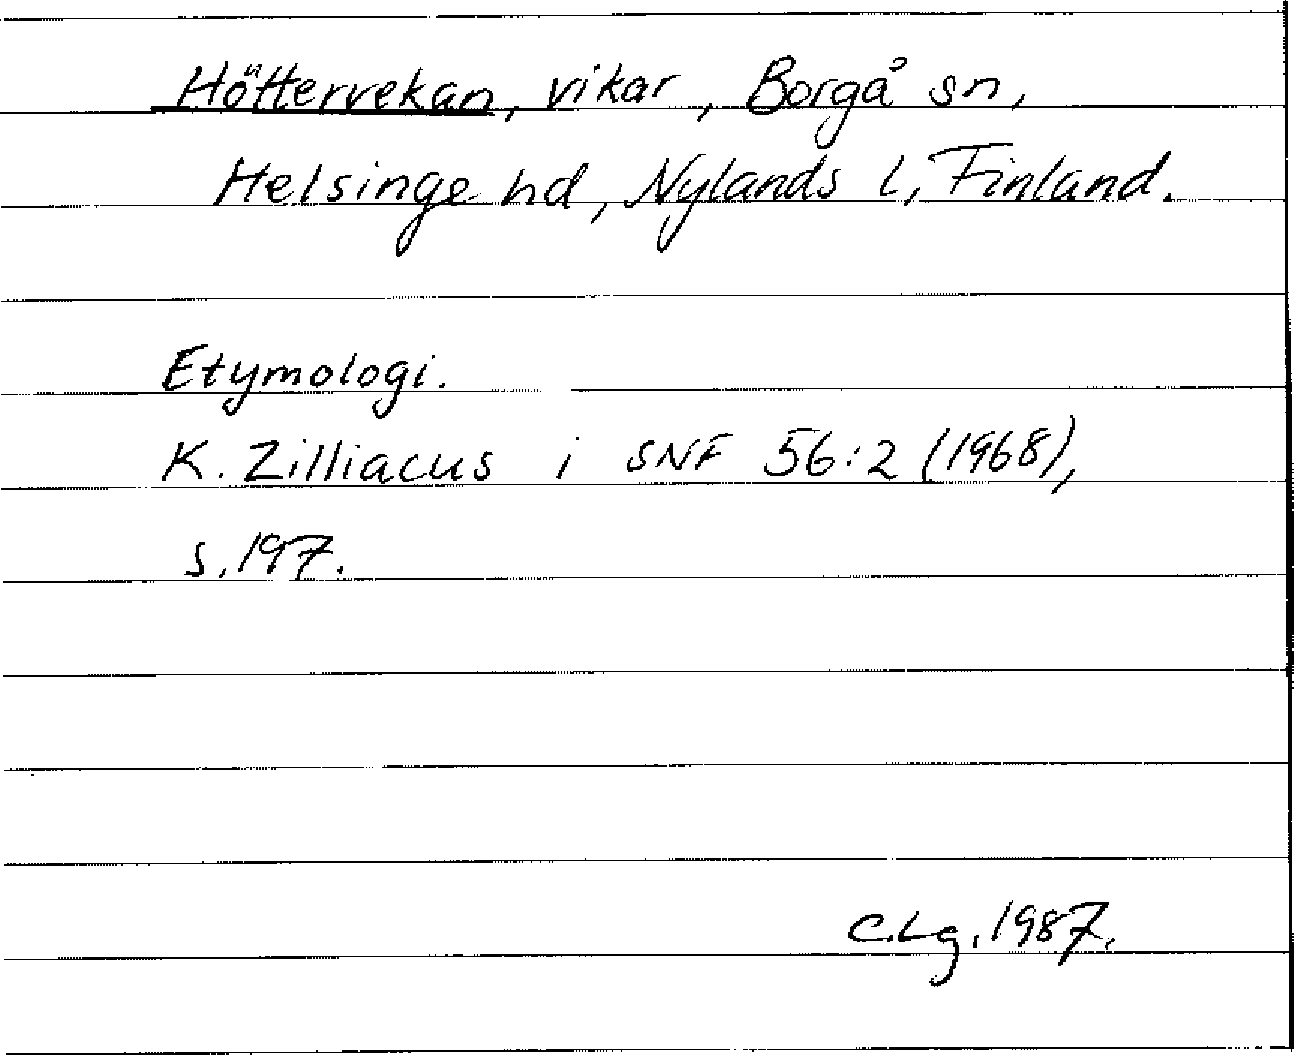 Höttervekan, vikar, Borgå sn,
Helsinge hd, Nylands l, Finland.
Etymologi.
K. Zilliacus i SNF 56:2 (1968),
s. 197.
C.Lg. 1987.